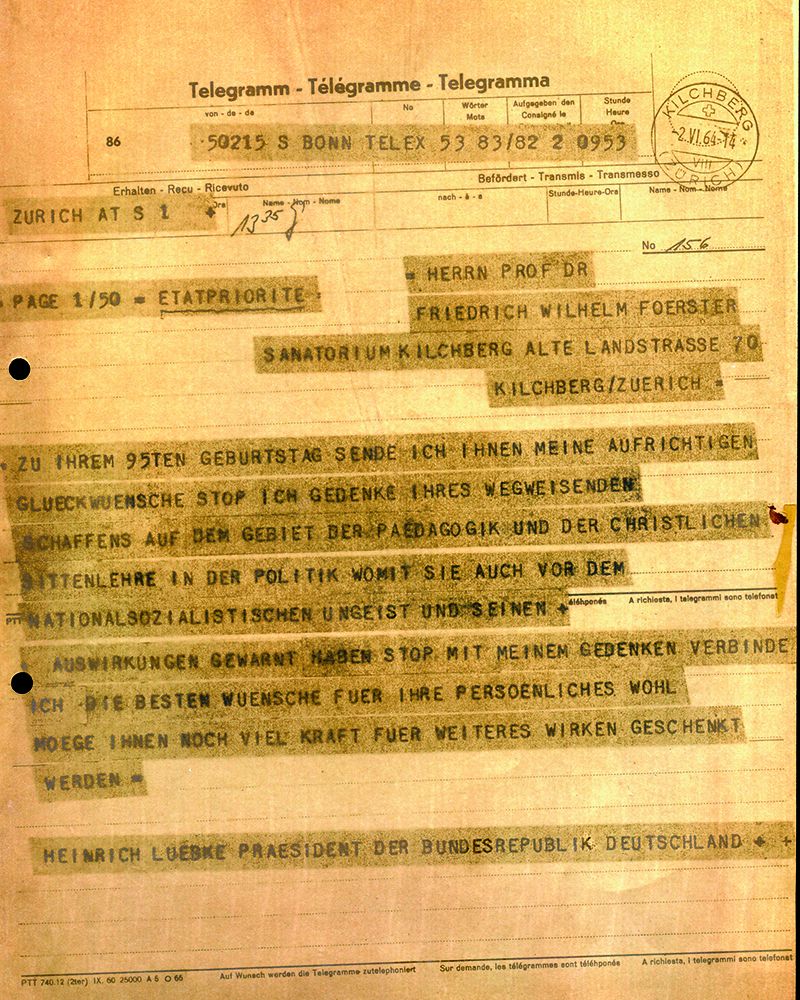 Telegramm - Télégramme - Telegramma
von - de - da No Wörter Mots Aufgegeben den Consigné le Stunde Heure
86 50215 S BONN TELEX 53 83/82 2 0953
KILCHBERG
-2.VI.64-14
VIII
(ZÜRICH)
Erhalten - Reçu - Ricevuto Befördert - Transmis - Transmesso
Name - Nom - Nome nach - à - a Stunde-Heure-Ora Name - Nom - Nome
ZURICH AT S 1 +
1335
No 156
= HERRN PROF DR
PAGE 1/50 = ETATPRIORITE =
FRIEDRICH WILHELM FOERSTER
SANATORIUM KILCHBERG ALTE LANDSTRASSE 70
KILCHBERG/ZUERICH =
ZU IHREM 95TEN GEBURTSTAG SENDE ICH IHNEN MEINE AUFRICHTIGEN
GLUECKWUENSCHE STOP ICH GEDENKE IHRES WEGWEISENDEN
SCHAFFENS AUF DEM GEBIET DER PAEDAGOGIK UND DER CHRISTLICHEN
SITTENLEHRE IN DER POLITIK WOMIT SIE AUCH VOR DEM
téléphonés A richiesta, i telegrammi sono telefonat
PTT NATIONALSOZIALISTISCHEN UNGEIST UND SEINEN +
AUSWIRKUNGEN GEWARNT HABEN STOP MIT MEINEM GEDENKEN VERBINDE
ICH DIE BESTEN WUENSCHE FUER IHRE PERSOENLICHES WOHL
MOEGE IHNEN NOCH VIEL KRAFT FUER WEITERES WIRKEN GESCHENKT
WERDEN =
HEINRICH LUEBKE PRAESIDENT DER BUNDESREPUBLIK DEUTSCHLAND + +
PTT 740.12 (2ter) IX. 60 25000 A 5 O 66 Auf Wunsch werden die Telegramme zutelephoniert Sur demande, les télégrammes sont téléphonés A richiesta, i telegrammi sono telefonat